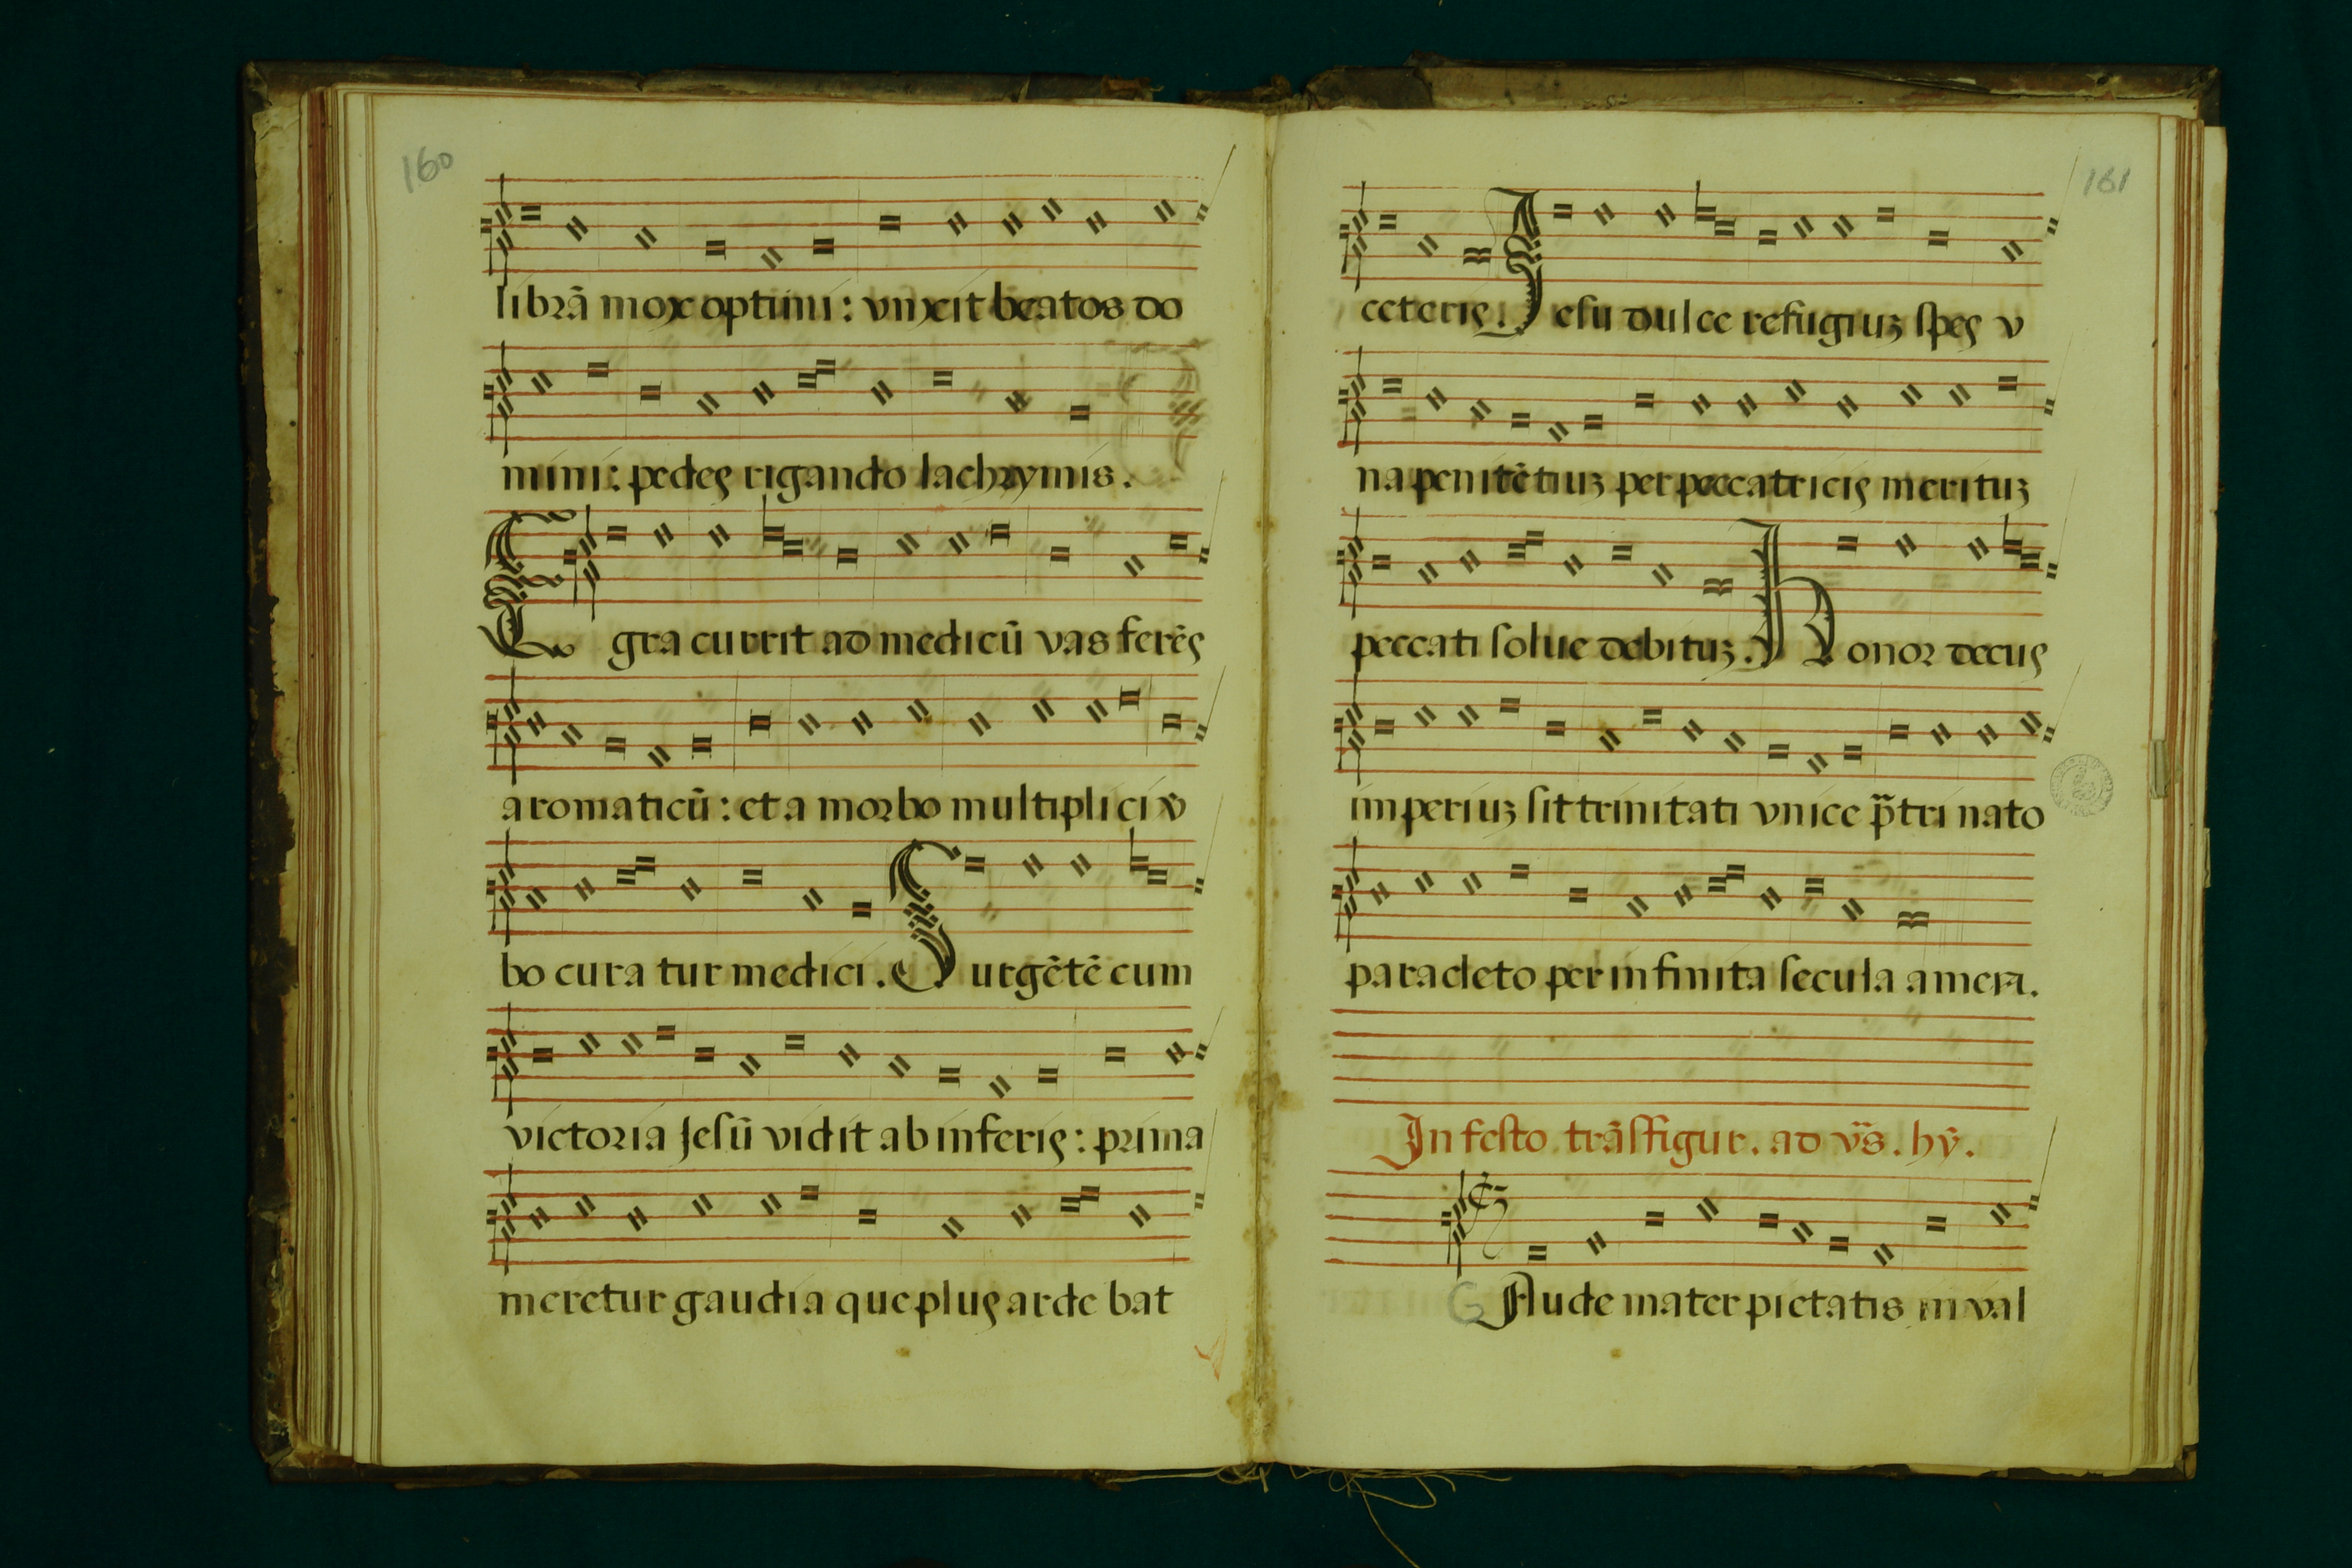 160
librā mox optimi: vnxit beatos do
mini: pedes rigando lachrymis.
Egra currit ad medicū vas ferēs
aromaticū: et a morbo multiplici v̄
bo curatur medici. Surgētē cum
victoria Jesū vidit ab inferis: prima
meretur gaudia que plus ardebat
161
ceteris. Jesu dulce refugiuz spes v
na penitētiuz per peccatricis merituz
peccati solue debituz. Honor decus
imperiuz sit trinitati vnice p̄tri nato
paracleto per infinita secula amen.
In festo trāsfigur. ad v̄s. hȳ.
GAude mater pietatis in val